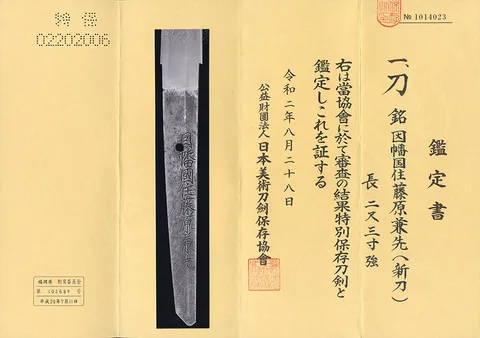 № 1014023
鑑定書
一、刀 銘 因幡国住藤原兼先(新刀)
長 二尺三寸強
右は當協會に於て審査の結果特別保存刀剣と
鑑定しこれを証する
令和二年八月二十八日
公益財團法人 日本美術刀劍保存協會
因幡國住藤原兼先
特保
02202006
福岡県 教育委員会
平成20年7月11日